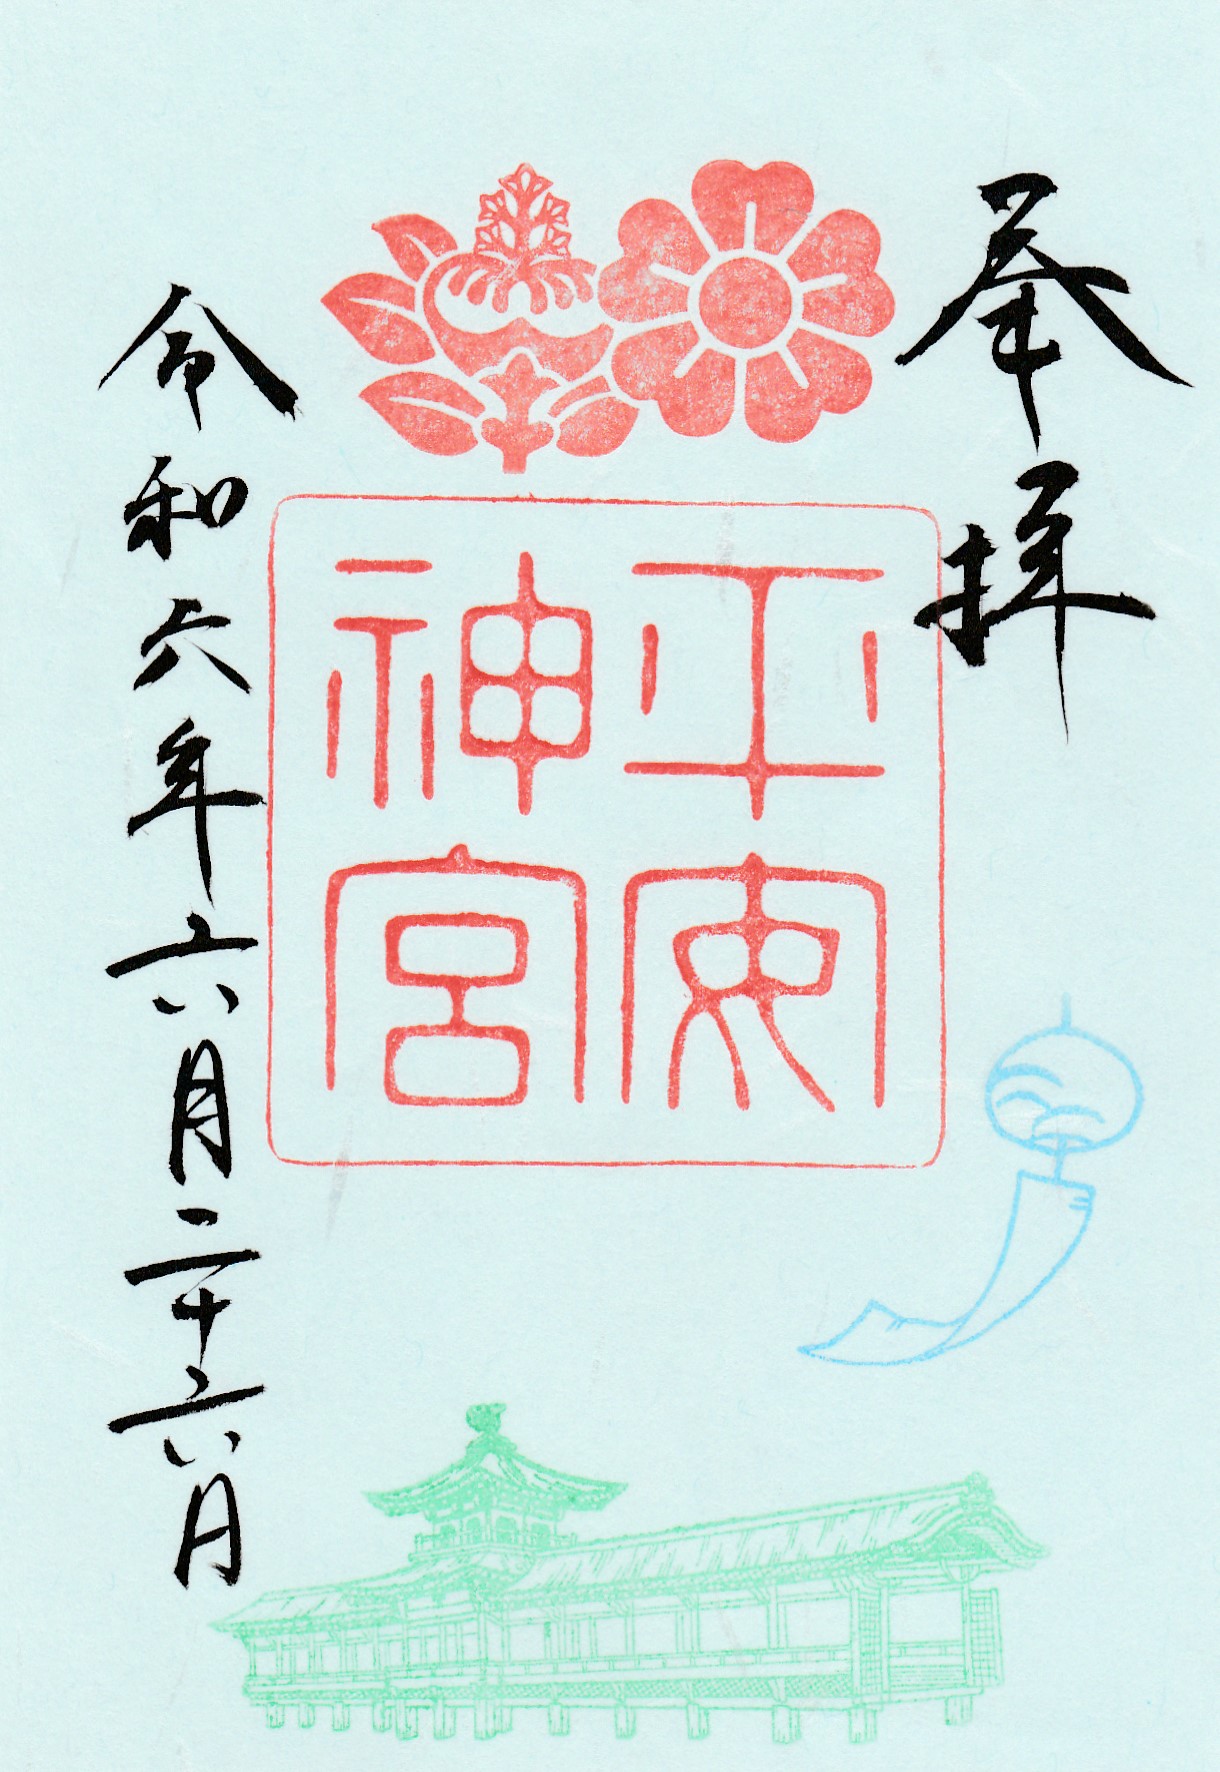 奉拝
平安
神宮
令和六年六月二十六日